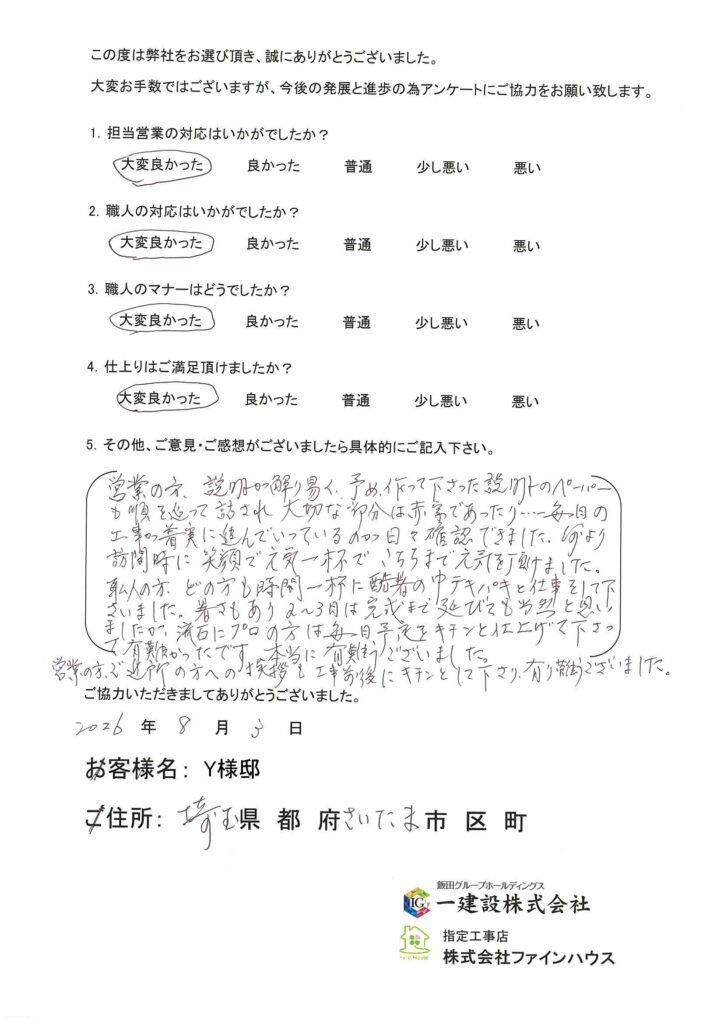 この度は弊社をお選び頂き、誠にありがとうございました。
大変お手数ではございますが、今後の発展と進歩の為アンケートにご協力をお願い致します。
1. 担当営業の対応はいかがでしたか?
大変良かった 良かった 普通 少し悪い 悪い
2. 職人の対応はいかがでしたか?
大変良かった 良かった 普通 少し悪い 悪い
3. 職人のマナーはどうでしたか?
大変良かった 良かった 普通 少し悪い 悪い
4. 仕上りはご満足頂けましたか?
大変良かった 良かった 普通 少し悪い 悪い
5. その他、ご意見・ご感想がございましたら具体的にご記入下さい。
営業の方、説明が解り易く、予め作って下さった説明のペーパー
も順を追って話され大切な部分は赤字であったり…毎日の
工事が着実に進んでいっているのが日々確認できました。何より
訪問時に笑顔で元気一杯でこちらまで元気を頂けました。
職人の方、どの方も時間一杯に酷暑の中テキパキと仕事をして下
さいました。暑さもあり2〜3日は完成まで延びても当然と思い
ましたが、流石にプロの方は毎日予定をキチンと仕上げて下さっ
て有難かったです。本当に有難うございました。
営業の方、ご近所の方への挨拶も工事前後にキチンとして下さり、有り難うございました。
ご協力いただきましてありがとうございました。
2026 年 8 月 3 日
お客様名: Y様邸
ご住所: 埼玉県 都 府さいたま市 区 町
飯田グループホールディングス
IG 一建設株式会社
指定工事店
Fine House 株式会社ファインハウス